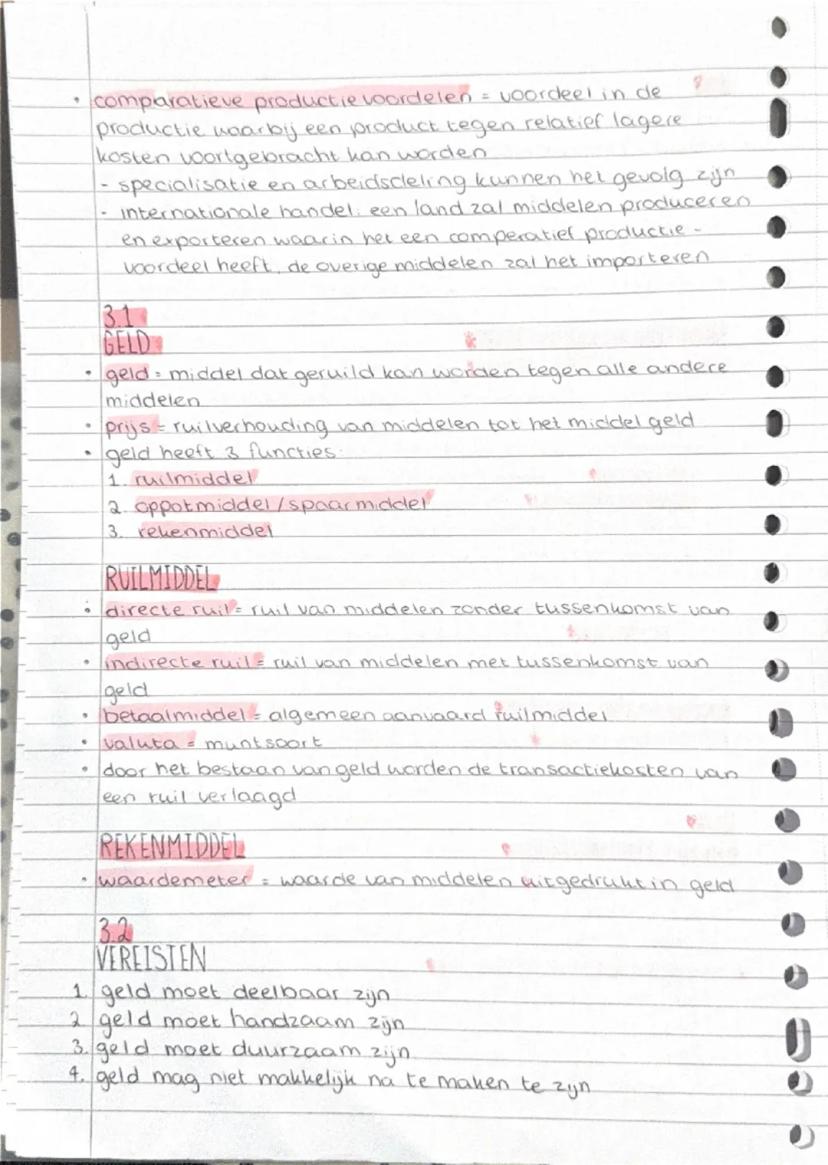 • comparatieve productievoordelen = voordeel in de
productie waarbij een product tegen relatief lagere
kosten voortgebracht kan worden
- specialisatie en arbeidsdeling kunnen het gevolg zijn
- internationale handel: een land zal middelen produceren
en exporteren waarin het een comperatief productie-
voordeel heeft, de overige middelen zal het importeren
3.1
GELD
• geld = middel dat geruild kan worden tegen alle andere
middelen
• prijs = ruilverhouding van middelen tot het middel geld
• geld heeft 3 functies:
1. ruilmiddel
2. oppotmiddel/spaarmiddel
3. rekenmiddel
RUILMIDDEL
• directe ruil = ruil van middelen zonder tussenkomst van
geld
• indirecte ruil = ruil van middelen met tussenkomst van
geld
• betaalmiddel = algemeen aanvaard ruilmiddel
• valuta = muntsoort
• door het bestaan van geld worden de transactiekosten van
een ruil verlaagd
REKENMIDDEL
• waardemeter = waarde van middelen uitgedrukt in geld
3.2
VEREISTEN
1. geld moet deelbaar zijn
2. geld moet handzaam zijn
3. geld moet duurzaam zijn
4. geld mag niet makkelijk na te maken te zijn